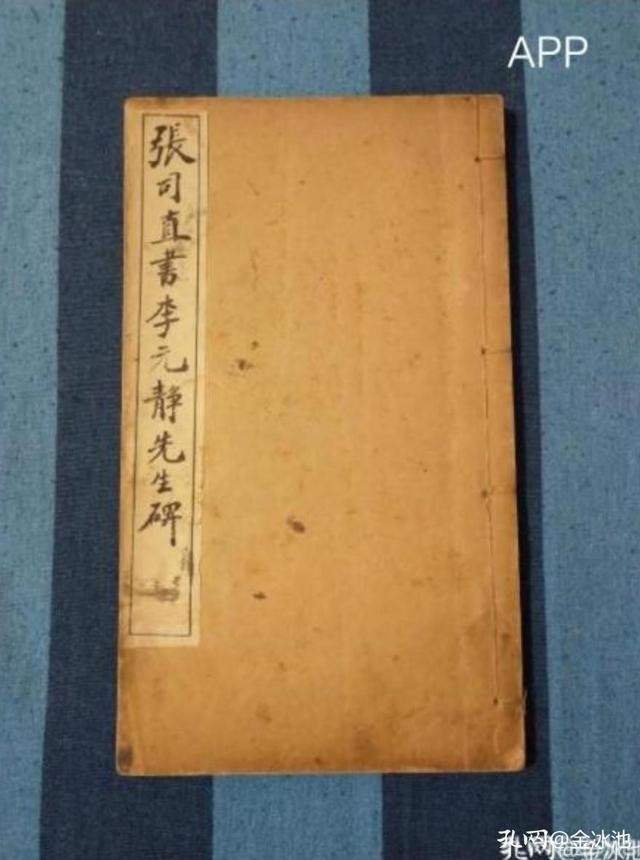 APP
張司直書李元靜先生碑
孔网@金冰池